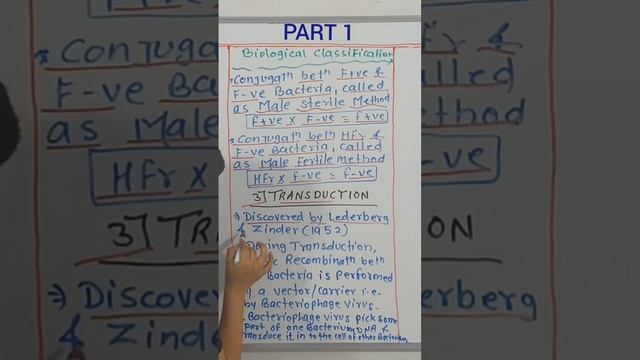 PART 1
Biological Classification
* Conjugatn betn F+ve &
F-ve Bacteria, called
as Male sterile Method
F+ve X F-ve = f+ve
* Conjugatn betn HFr &
F-ve Bacteria, called
as Male Fertile method
HFr X f-ve = f-ve
3] TRANSDUCTION
⇒ Discovered by Lederberg
& Zinder (1952)
During Transduction,
Recombinatn betn
Bacteria is performed
a vector/carrier i.e
by Bacteriophage virus.
Bacteriophage virus pick some
Part of one Bacterium DNA &
transduce it in to the cell of other Bacterium